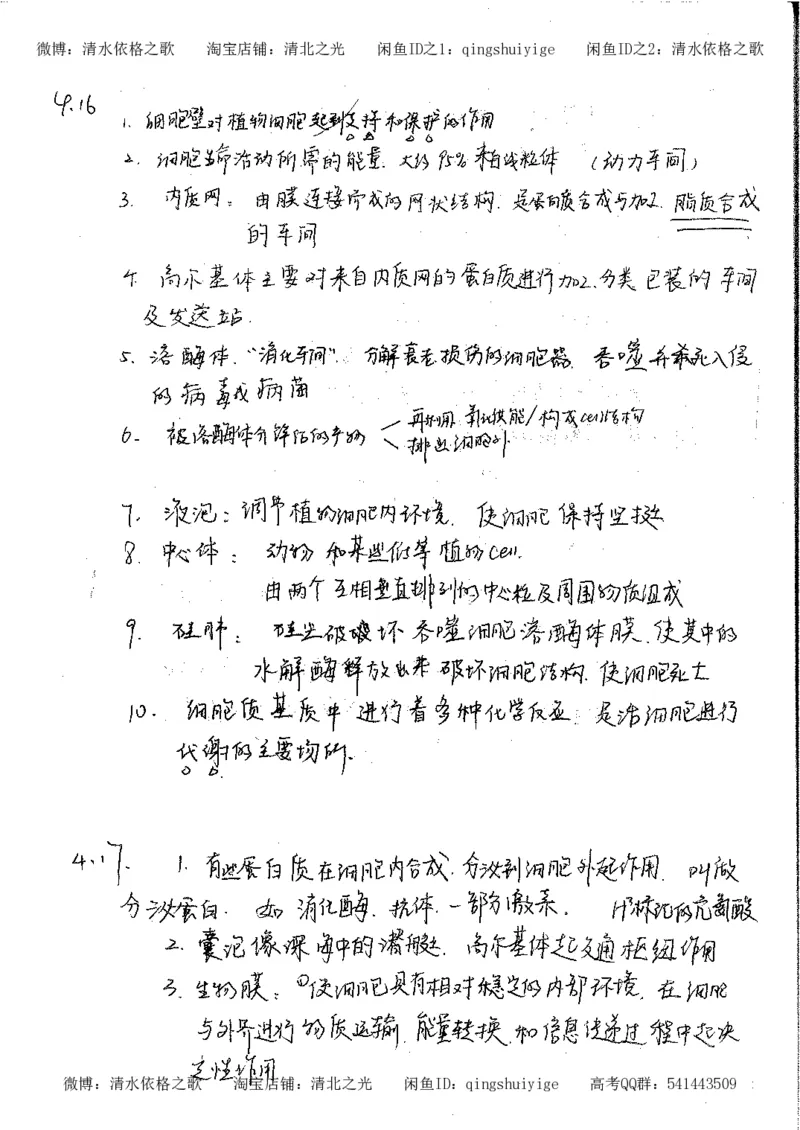 微博：清水依格之歌 淘宝店铺：清北之光 闲鱼ID之1：qingshuiyige 闲鱼ID之2：清水依格之歌
4.16
1. 细胞壁对植物细胞起到支持和保护的作用
2. 细胞生命活动所需的能量，大约95%来自线粒体 （动力车间）
3. 内质网：由膜连接而成的网状结构，是蛋白质合成与加工，脂质合成
的车间
4. 高尔基体主要对来自内质网的蛋白质进行加工、分类、包装的车间
及发送站.
5. 溶酶体、“消化车间”. 分解衰老损伤的细胞器，吞噬并杀死入侵
的病毒或病菌
6. 被溶酶体分解后的产物
再利用、氧化供能/构成cell结构
排出细胞外
7. 液泡：调节植物细胞内环境，使细胞保持坚挺
8. 中心体： 动物和某些低等植物cell.
由两个互相垂直排列的中心粒及周围物质组成
9. 硅肺： 硅尘破坏吞噬细胞溶酶体膜，使其中的
水解酶释放出来 破坏细胞结构，使细胞死亡
10. 细胞质基质中进行着多种化学反应，是活细胞进行
代谢的主要场所.
4.17. 1. 有些蛋白质在细胞内合成，分泌到细胞外起作用，叫做
分泌蛋白. 如消化酶、抗体、一部分激素. ³H标记的亮氨酸
2. 囊泡像深海中的潜艇，高尔基体起交通枢纽作用
3. 生物膜：①使细胞具有相对稳定的内部环境，在细胞
与外界进行物质运输，能量转换，和信息传递过程中起决
定性作用
微博：清水依格之歌 淘宝店铺：清北之光 闲鱼ID：qingshuiyige 高考QQ群：541443509